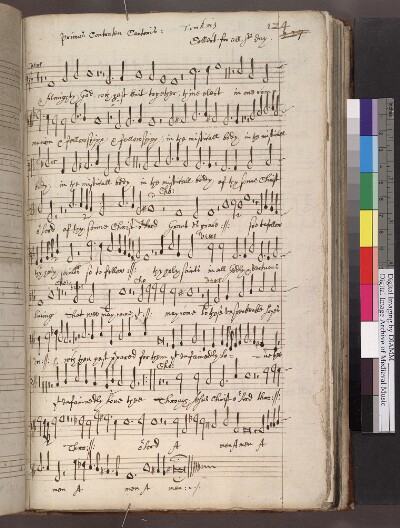 primus Contratenor Cantoris : Tomkins 124
Collect for all Sts day .
verse
Almighty God wch hast knit together, thine elect in one com
munion & fellowshippe & fellowshippe, in the misticall body in the misticall
body, in the misticall body in the misticall body of thy sonne Christ
Cho:
o^r lord of thy sonne Christ o^r lord Grant us grace :||: so to follow
verse
thy holy so to follow :||: thy holy saints in all godly & vertuous
Cho: verse
living That wee may come to :||: may come to those unspeakable Joyes
:||: wch thou hast prepared for them yt unfainedly lo- -ve thee
Cho:
yt unfainedly love thee Through Jesus Christ o^r lord thro: :||:
Thro: :||: o^r lord A menAmen A
men A men A men :
Digital Imaging by DIAMM
Digital Image Archive of Medieval Music